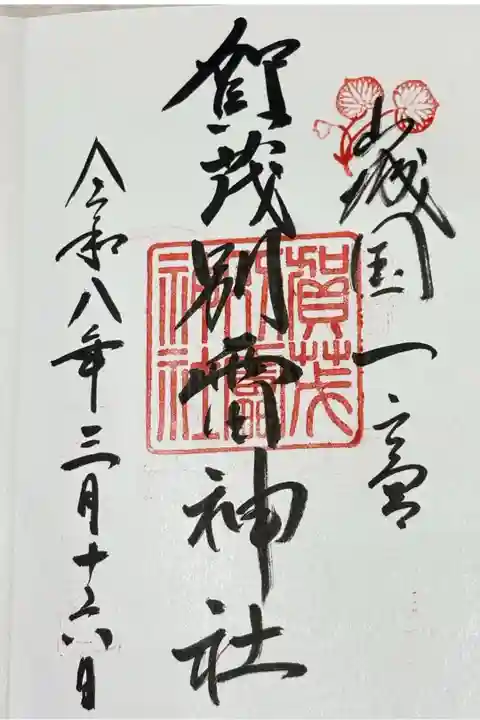 山城国一之宮
賀茂別雷神社
賀茂別雷神社
令和八年三月十六日